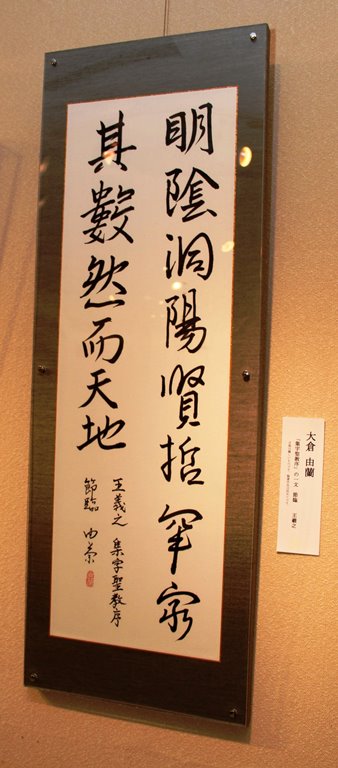 明陰洞陽賢哲罕窮
其數然而天地
王羲之 集字聖教序
節臨 由蘭
大倉 由蘭
「集字聖教序」の一文 節臨 王羲之